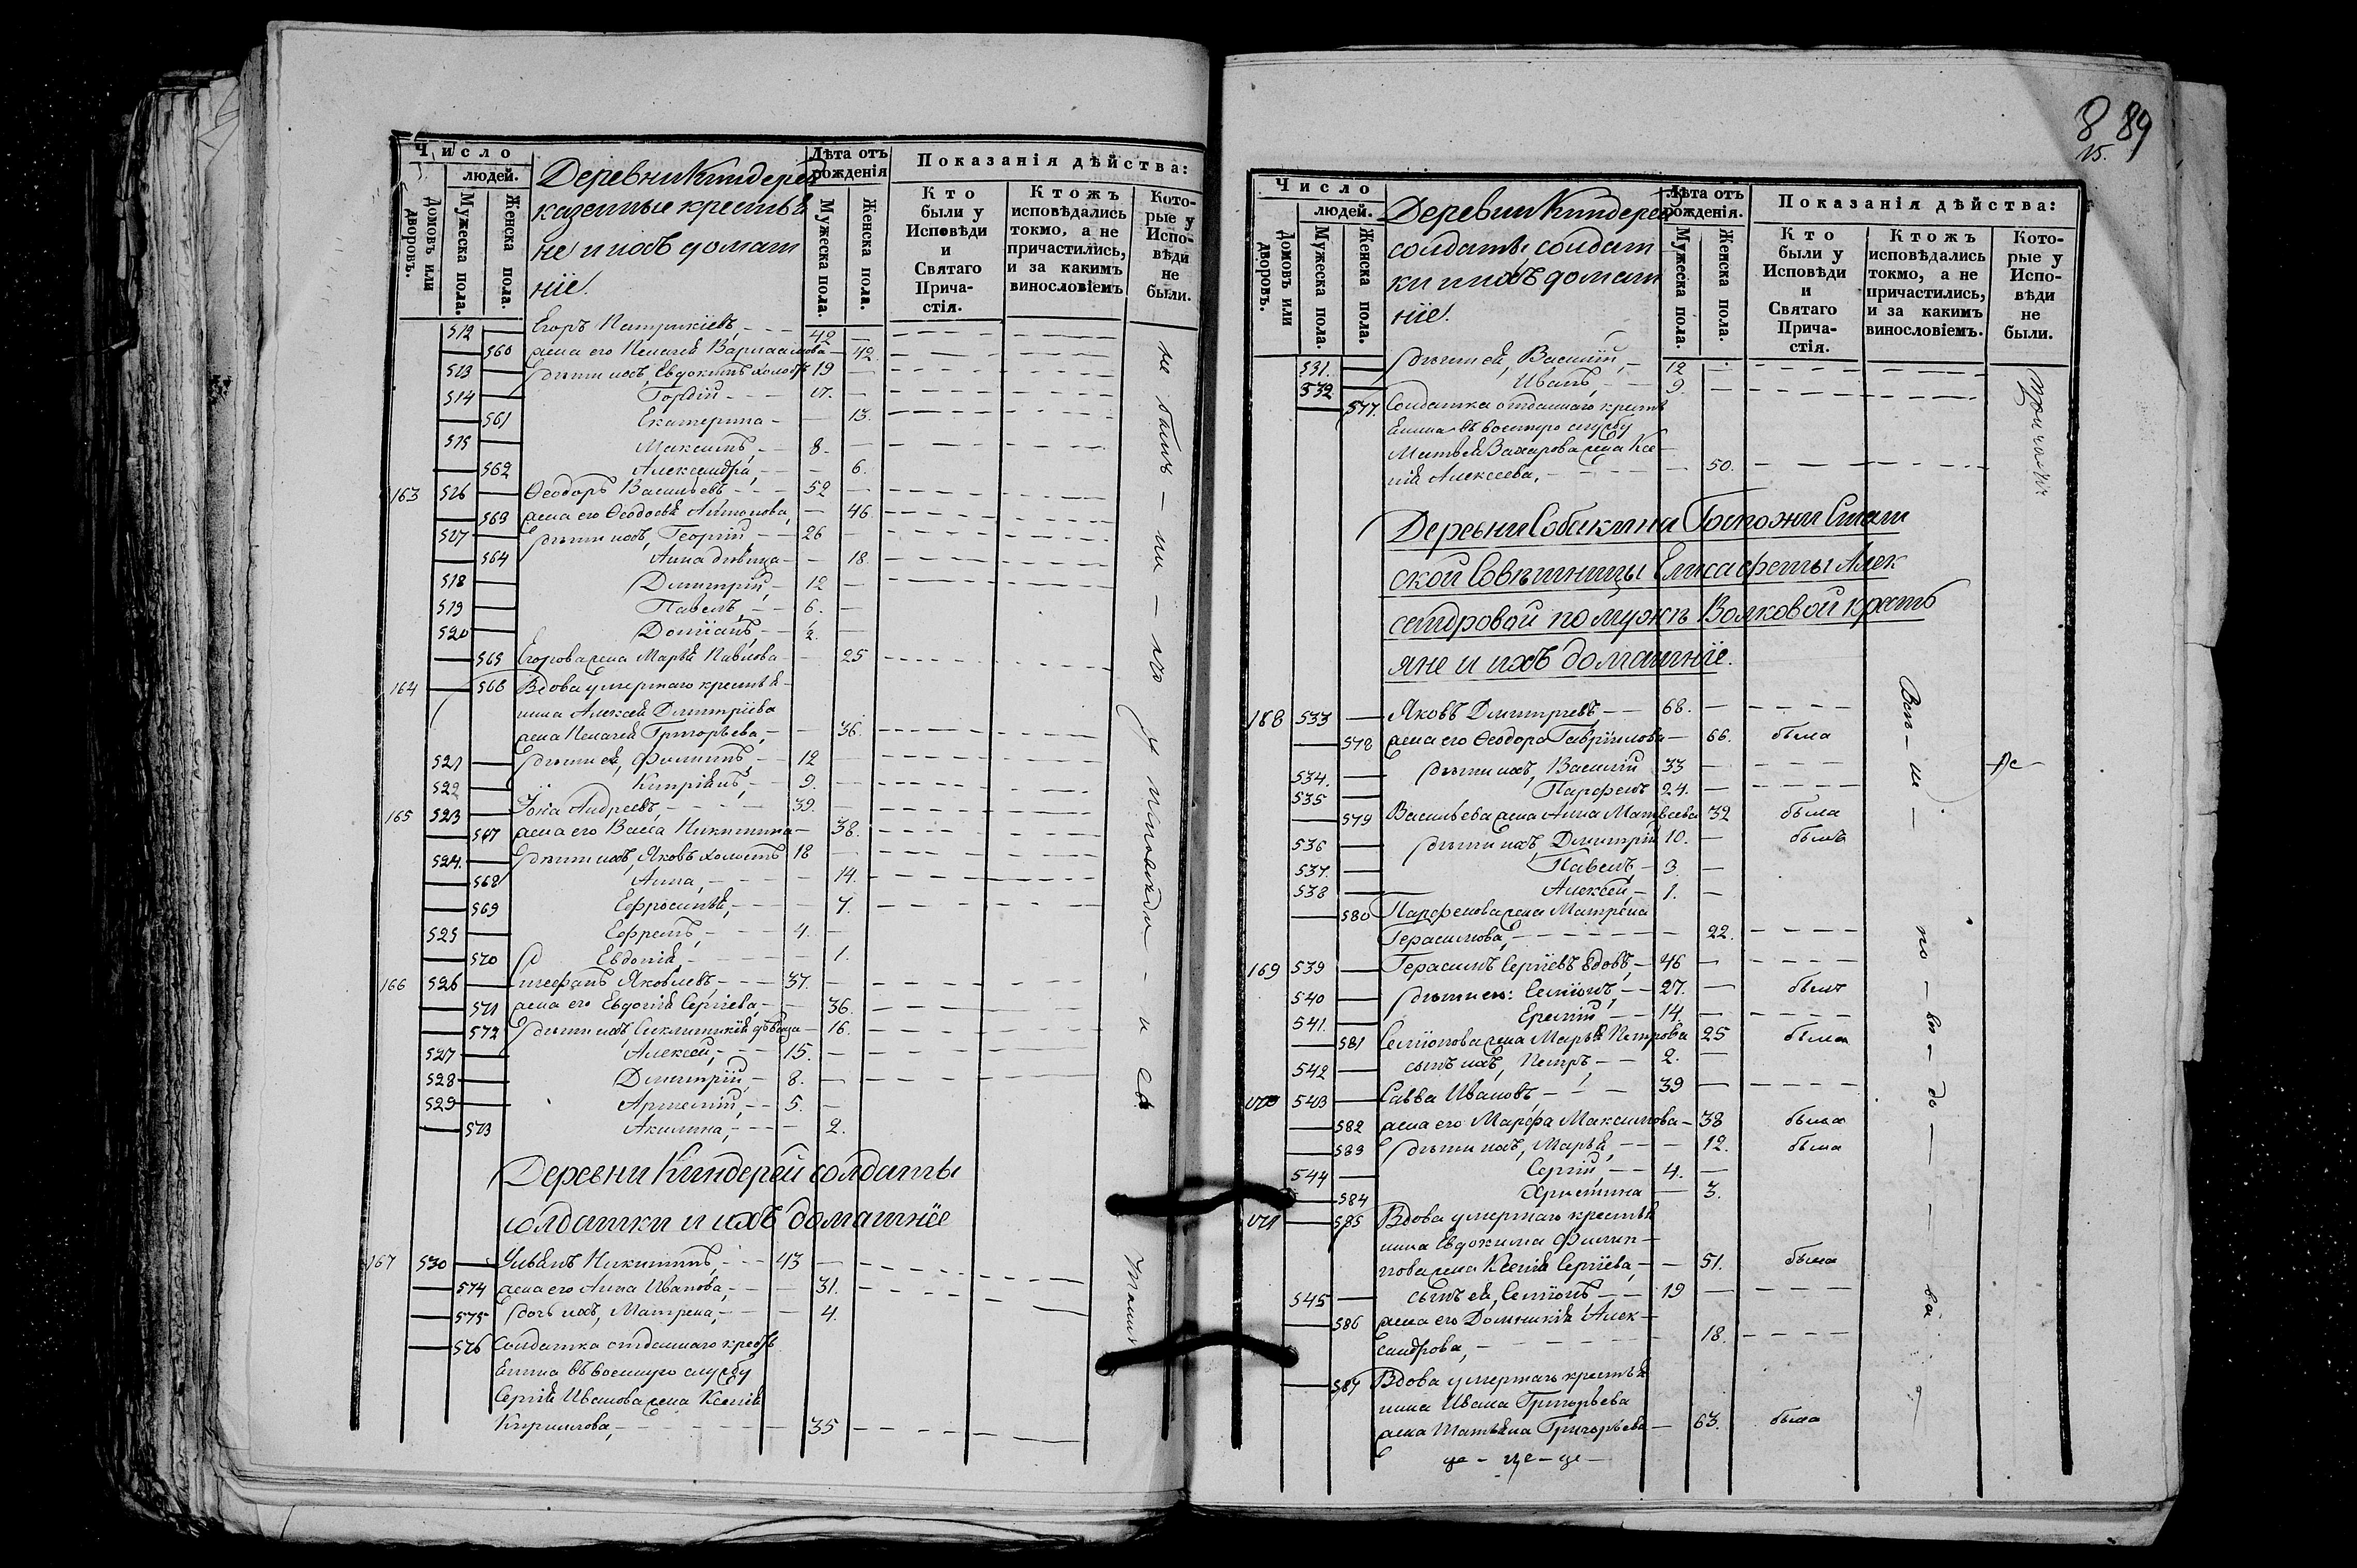 Число
людей.
Домовъ или дворовъ.
Мужеска пола.
Женска пола.
Деревни Киндерей
казенные крестья
не и ихъ домаш
ніе.
Лѣта отъ
рожденія
Мужеска пола.
Женска пола.
Показанія дѣйства:
Кто
были у
Исповѣди
и
Святаго
Прича-
стія.
Ктожъ
исповѣдались
токмо, а не
причастились,
и за какимъ
винословіемъ
Кото-
рые у
Испо-
вѣди
не
были.
512 Егоръ Патрикіевъ 42
560 жена его Пелагея 42
513 дѣти ихъ, Евдокимъ холостъ 19
514 Гордій 17.
561 Екатерина 13.
515 Максимъ 8.
562 Александра 6.
163 516 Ѳеодоръ Васильевъ 52
563 жена его Ѳеодосья Антонова 46
517 дѣти ихъ, Георгій 26
564 Анна дѣвица 18.
518 Димитрій 12
519 Павелъ 6.
520 ½.
565 Егорова жена Марья Павлова 25
164 566 Вдова умершаго крестья-
нина Алексея Димитріева
жена Пелагея Григорьева, 36.
521 дѣти ея, Филиппъ 12
522 Кипріянъ 9.
165 523 Іона Андреевъ 39.
567 жена его Васса Никитина 38.
524. дѣти ихъ, Яковъ холостъ 18
568 Анна 14.
569 Ефросинья 7.
525 Ефремъ 4.
570 Евдокія 1.
166 526 Стефанъ Яковлевъ 37.
571 жена его Евдокія Сергіева 36.
572 дѣти ихъ, Синклитикія дѣвица 16.
527 Алексей 15.
528 Димитрій 8.
529 Артемій 5.
573 Акилина 2.
Деревни Киндерей солдаты
солдатки и ихъ домашніе
167 530 Никитинъ 43
574 жена его Анна Иванова 31.
575 дочь ихъ, Матрена 4.
576 Солдатка отданнаго кресть
янина въ военную службу
Сергія Иванова жена Ксенія
Кирилова, 35
не былъ – ни – кто у исповѣди – и св.
8 89
15.
Число
людей.
Домовъ или дворовъ.
Мужеска пола.
Женска пола.
Деревни Киндерей
солдаты, солдат
ки и ихъ домаш
ніе.
Лѣта отъ
рожденія.
Мужеска пола.
Женска пола.
Показанія дѣйства:
Кто
были у
Исповѣди
и
Святаго
Прича-
стія.
Ктожъ
исповѣдались
токмо, а не
причастились,
и за какимъ
винословіемъ.
Кото-
рые у
Испо-
вѣди
не
были.
531. дѣти ея, Василій 12
532 Иванъ 9.
577. Солдатка отданнаго кресть
янина въ военную службу
Матвея Захарова жена Ксе
нія Алексеева, 50.
Деревни Собакина Госпожи Стат
ской Совѣтницы Елисаветы Алек
сандровой по мужѣ Волковой кресть
яне и ихъ домашніе.
168 533 Яковъ Димитріевъ 68.
578 жена его Ѳеодора Гавриилова 66. была
534. дѣти ихъ, Василій 33
535 Парфенъ 24.
579 Васильева жена Анна Матвеева 32 была
536 дѣти ихъ Димитрій 10. былъ
537. Павелъ 3.
538 Алексей 1.
580 Парфенова жена Матрена
Герасимова, 22.
169 539 Герасимъ Сергіевъ вдовъ 46
540 дѣти его: Семіонъ 27. былъ
541. 14.
581 Семіонова жена Марья Петрова 25 была
542 сынъ ихъ, Петръ 2.
170 543 Савва Ивановъ 39
582 жена его Марфа Максимова 38 была
583 дѣти ихъ, Марья 12. была
544 Сергій 4.
584 Христина 3.
171 585 Вдова умершаго крестья
нина Евдокима Филип-
пова жена Ксенія Сергіева, 51. была
545 сынъ ея, Семіонъ 19
586 жена его Домникія Алек-
сандрова, 18.
587 Вдова умершаго крестья
нина Ивана Григорьева
жена Татьяна Григорьева 63. была